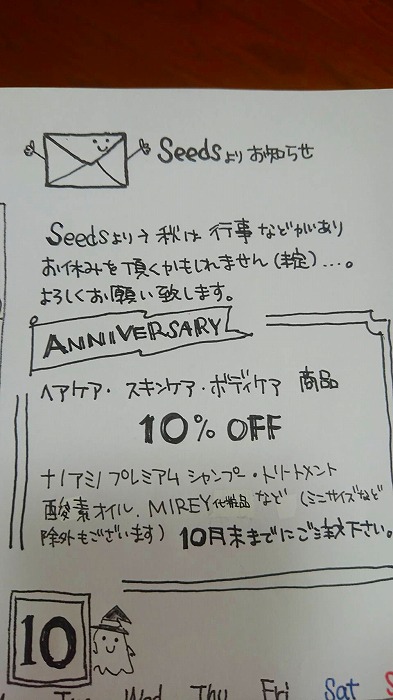 Seedsより お知らせ
Seedsより→ 秋は 行事 などがあり
お休みを頂くかもしれません(未定)…。
よろしくお願い致します。
ANNIVERSARY
ヘアケア・スキンケア・ボディケア 商品
10% OFF
ナノアミノ プレミアム シャンプー・トリートメント
酸素オイル、MIREY化粧品 など (ミニサイズなど
除外もございます) 10月末までにご注文下さい。
10
Tue Wed Thu Fri Sat